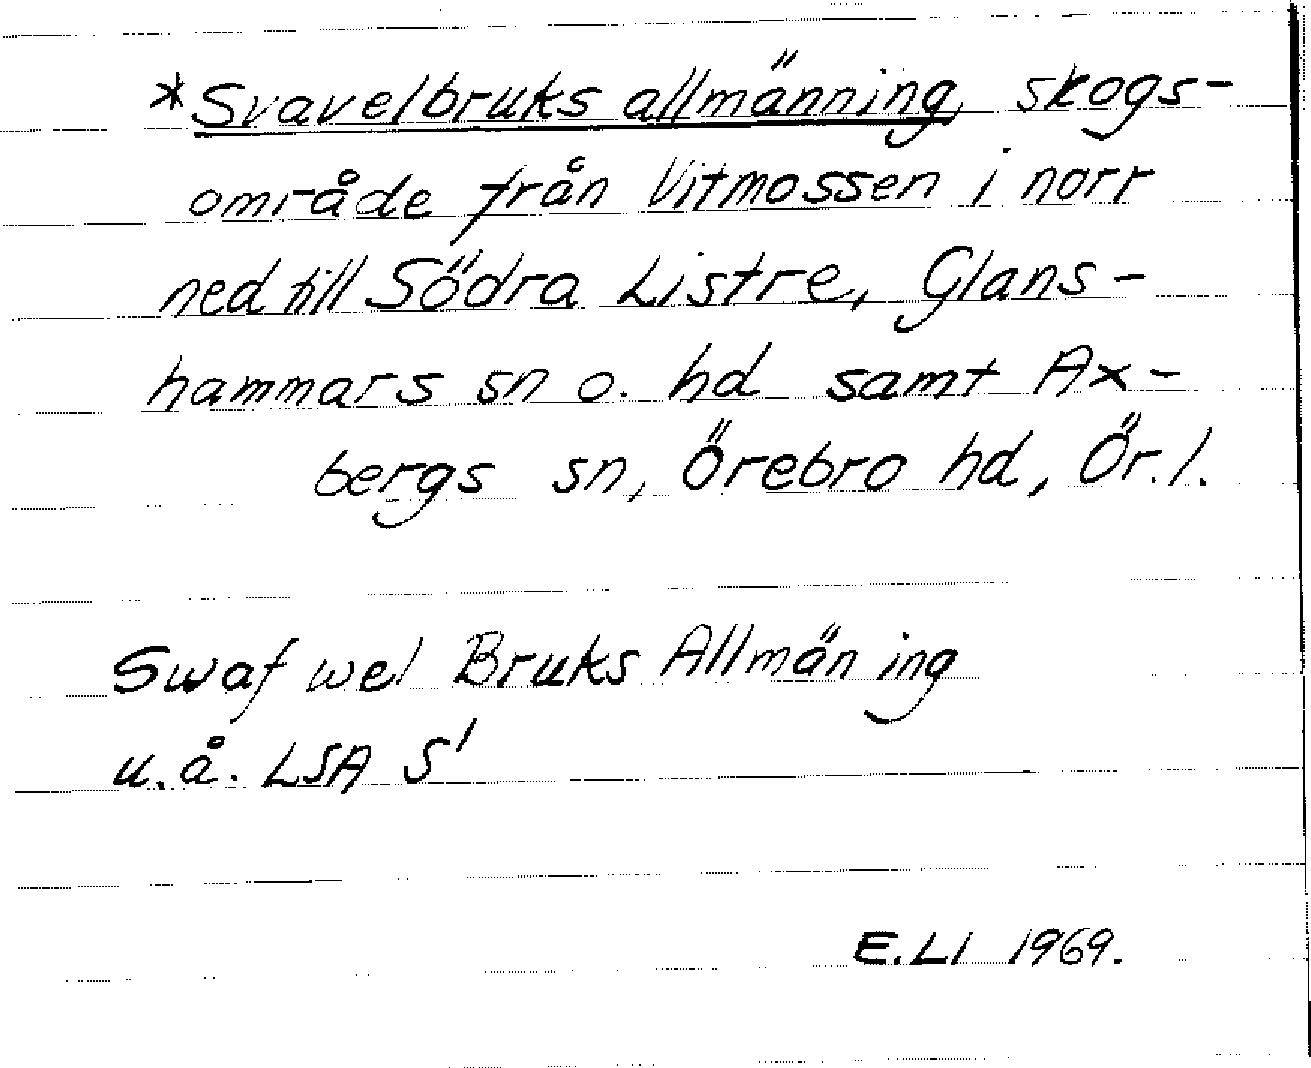 *Svavelbruks allmänning, skogs-
område från Vitmossen i norr
ned till Södra Listre, Glans-
hammars sn o. hd samt Ax-
bergs sn, Örebro hd, Ör. l.
Swafwel Bruks Allmäning
u.å. LSA S'
E.LI 1969.